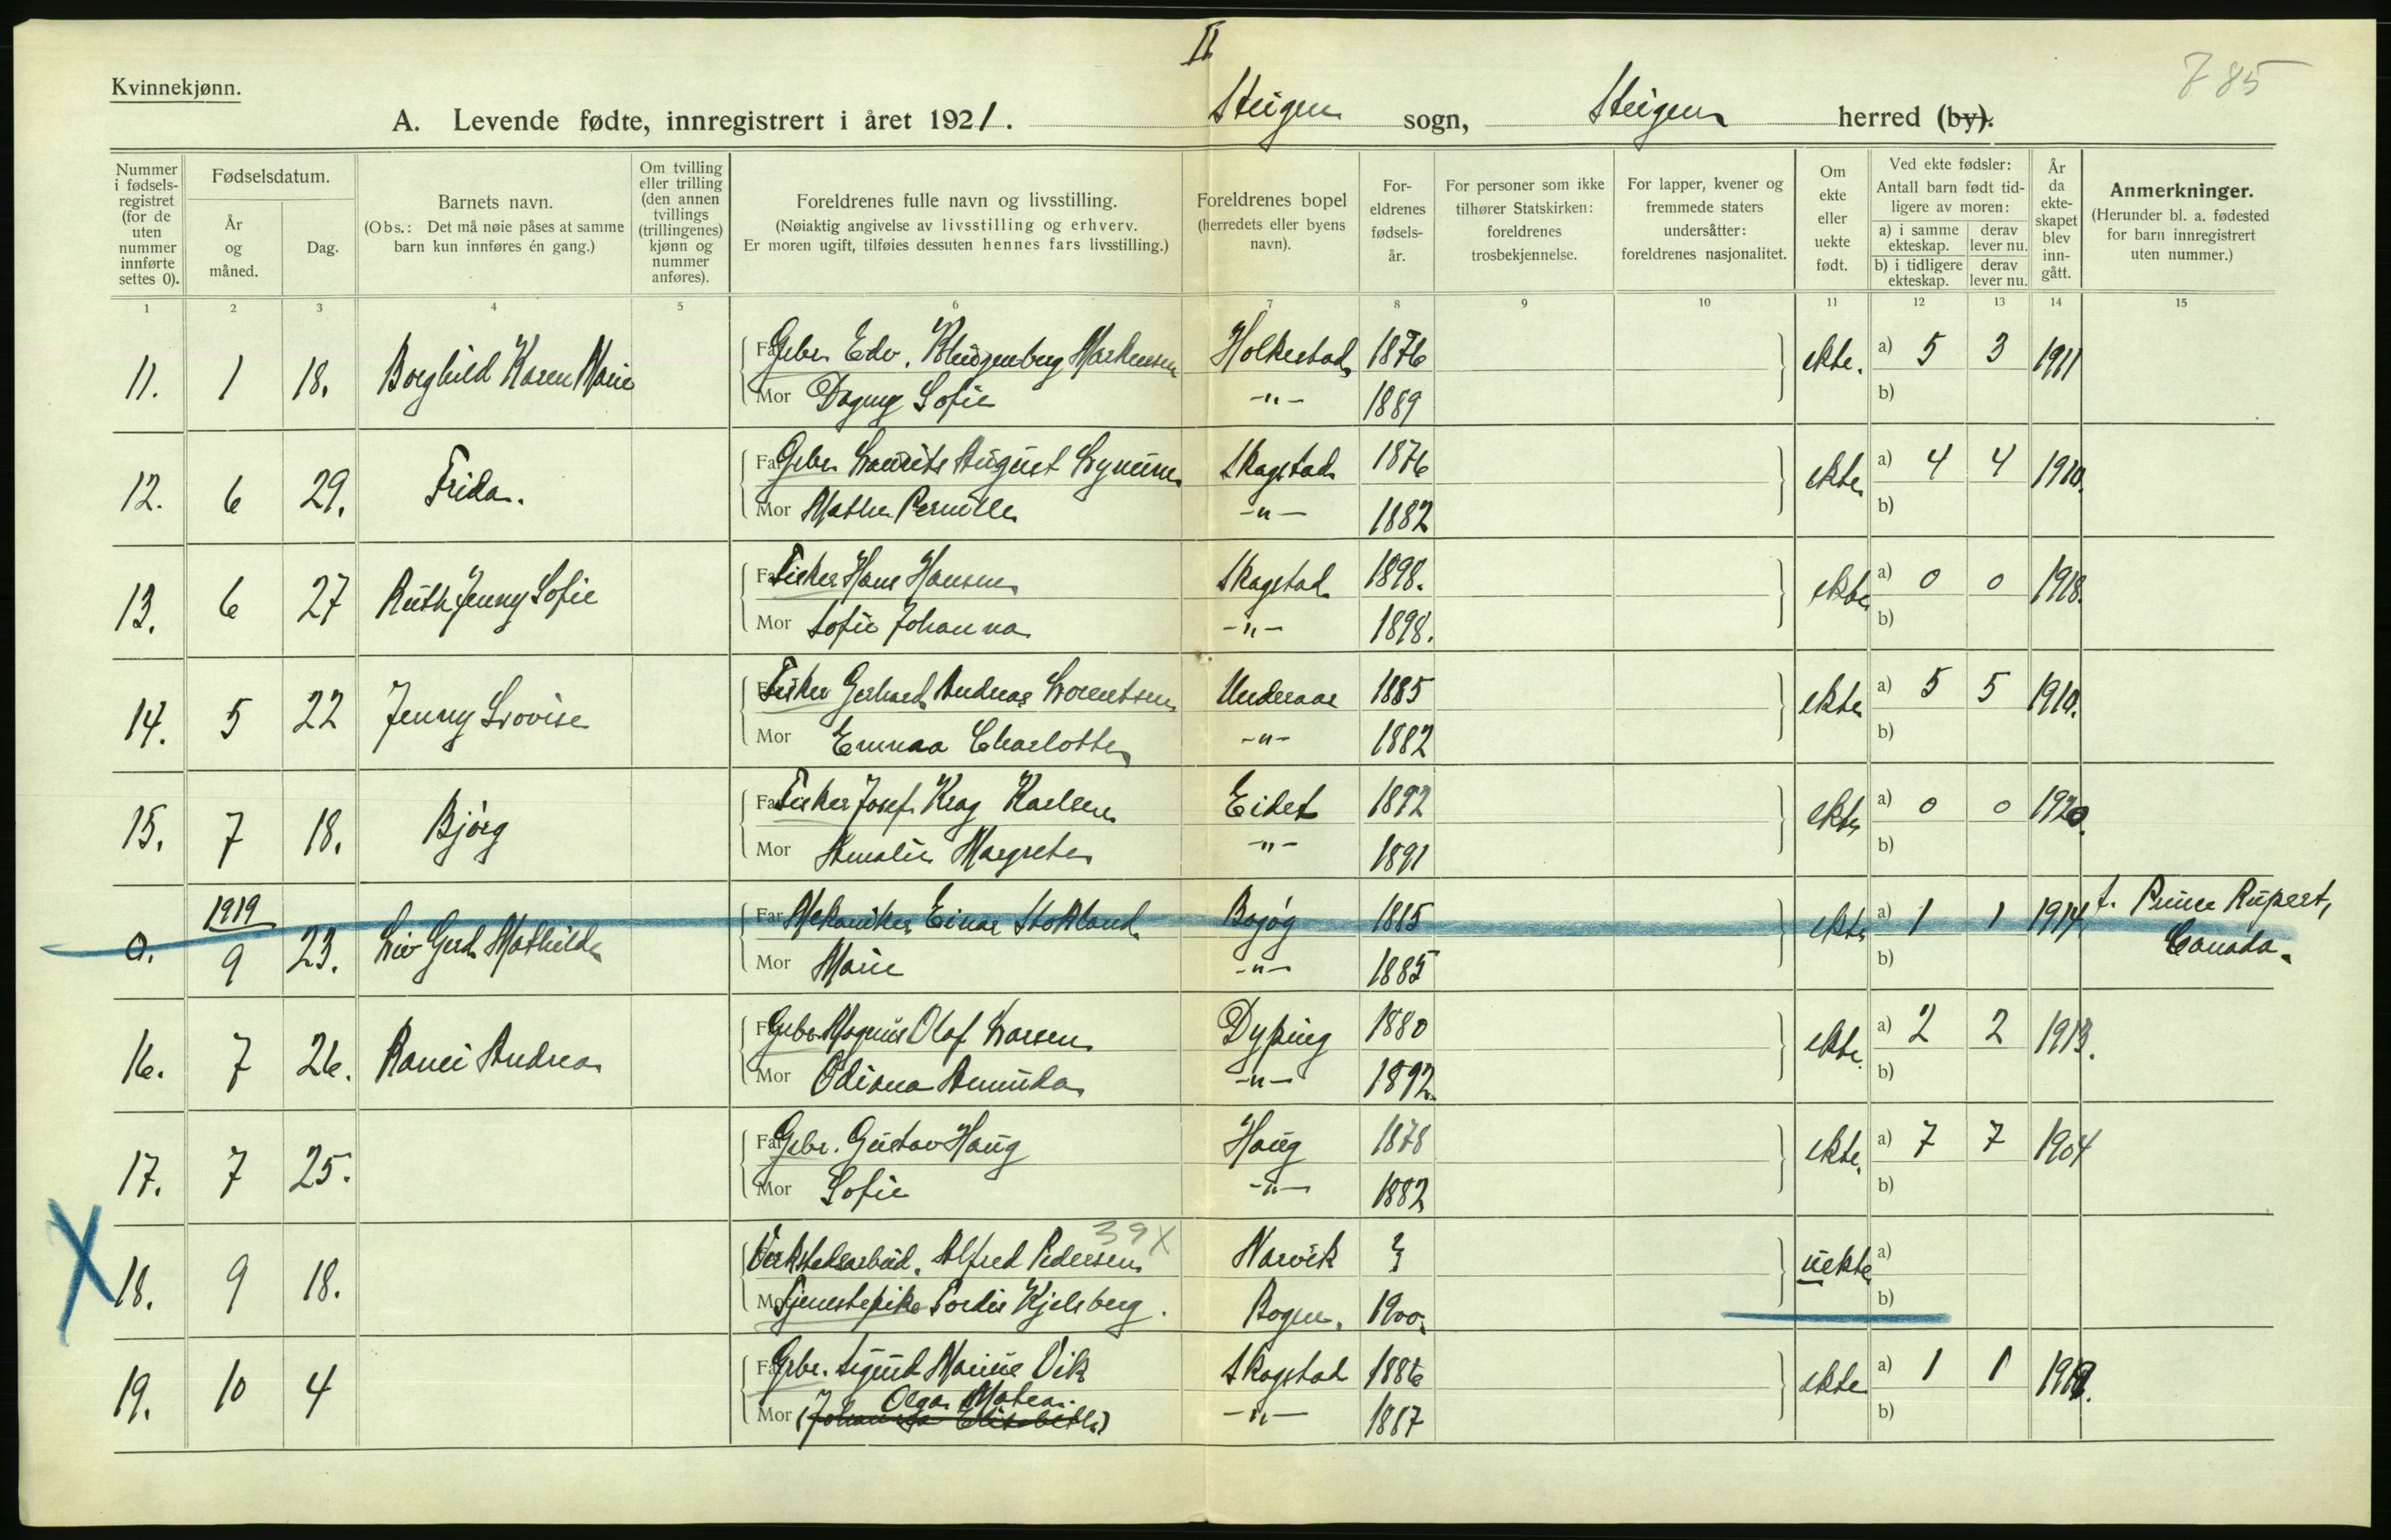 II
785
Kvinnekjønn.
A. Levende fødte, innregistrert i året 1921. Steigen sogn, Steigen herred (by).
Nummer i fødsels-registret (for de uten nummer innførte settes 0).
Fødselsdatum.
År og måned.
Dag.
Barnets navn.
(Obs.: Det må nøie påses at samme barn kun innføres én gang.)
Om tvilling eller trilling (den annen tvillings (trillingenes) kjønn og nummer anføres).
Foreldrenes fulle navn og livsstilling.
(Nøiaktig angivelse av livsstilling og erhverv.
Er moren ugift, tilføies dessuten hennes fars livsstilling.)
Foreldrenes bopel
(herredets eller byens navn).
For-eldrenes fødsels-år.
For personer som ikke tilhører Statskirken: foreldrenes trosbekjennelse.
For lapper, kvener og fremmede staters undersåtter: foreldrenes nasjonalitet.
Om ekte eller uekte født.
Ved ekte fødsler:
Antall barn født tid-ligere av moren:
a) i samme ekteskap.
derav lever nu.
b) i tidligere ekteskap.
derav lever nu.
År da ekte-skapet blev inn-gått.
Anmerkninger.
(Herunder bl. a. fødested for barn innregistrert uten nummer.)
1 2 3 4 5 6 7 8 9 10 11 12 13 14 15
11. 1 18. Borghild Karen Marie Far Gbr. Edv. Markussen Holkestad 1876 ekte. a) 5 3 1911
Mor Dagny Sofie -"- 1889 b)
12. 6 29. Frida. Far Gbr. Laurits August Lynum Skagstad 1876 ekte a) 4 4 1910.
Mor Mathe Pernille -"- 1882 b)
13. 6 27 Ruth Jenny Sofie Far Fisker Hans Hansen Skagstad 1898. ekte a) 0 0 1918.
Mor Sofie Johanna -"- 1898. b)
14. 5 22 Jenny Lovise Far Fisker Gerhard Andreas Lorentsen 1885 ekte a) 5 5 1910.
Mor Emma Charlotte -"- 1882 b)
15. 7 18. Bjørg Far Fisker Josef Krag Karlsen Eidet 1892 ekte a) 0 0 1920.
Mor Amalie Margrete -"- 1891 b)
1919
0. 9 23. Liv Gerd Mathilde Far Mekaniker Einar Stokland Bogøy 1885 ekte a) 1 1 1914 f. Prince Rupert,
Mor Marie -"- 1885 b) Canada.
16. 7 26. Ranei Andrea Far Gbr. Magnus Olaf Larsen Dyping 1880 ekte. a) 2 2 1913.
Mor Odiana Aminda -"- 1892. b)
17. 7 25. Far Gbr. Gustav Haug Haug 1878 ekte. a) 7 7 1904
Mor Sofie -"- 1882 b)
39X
18. 9 18. Verkstedsarbeid. Alfred Pedersen Narvik ? uekte a)
Mor Tjenestepike Tordis Kjelsberg. Bogen. 1900. b)
19. 10 4 Far Gbr. Sigurd Marius Vik Skagstad 1886 ekte a) 1 1
Olga Matea.
Mor (Johanna Elisabeth) -"- 1887 b)